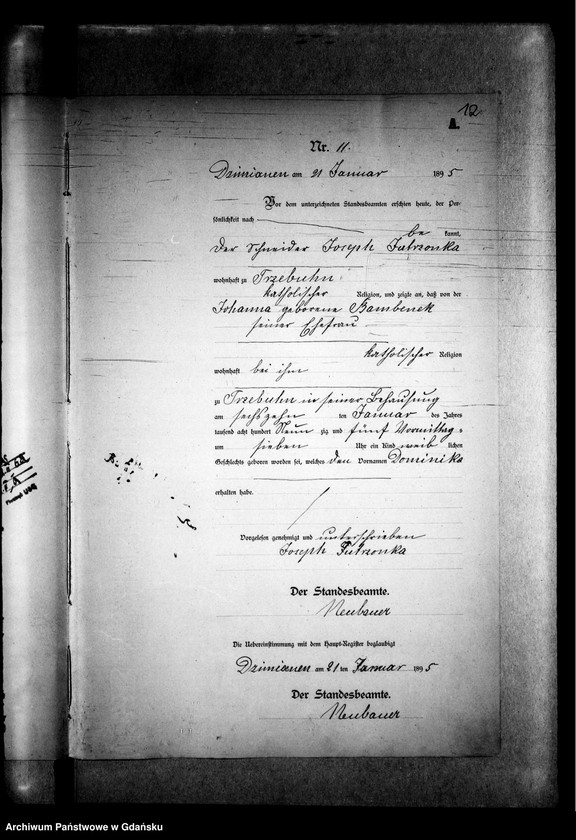 12
A.
Nr. 11.
Dzimianen am 21 Januar 1895
Vor dem unterzeichneten Standesbeamten erschien heute, der Per-
sönlichkeit nach
be kannt,
der Schneider Joseph Jutrzonka
wohnhaft zu Trzebuhn
katholischer Religion, und zeigte an, daß von der
Johanna geborene Bambenek
seiner Ehefrau
katholischer Religion
wohnhaft bei ihm
zu Trzebuhn in seiner Behausung
am sechszehn ten Januar des Jahres
tausend acht hundert Neun zig und fünf Vormittag s
um sieben Uhr ein Kind weib lichen
Geschlechts geboren worden sei, welches den Vornamen Dominika
erhalten habe.
Vorgelesen genehmigt und unterschrieben
Joseph Jutrzonka
Der Standesbeamte.
Neubauer
Die Uebereinstimmung mit dem Haupt-Register beglaubigt
Dzimianen am 21 ten Januar 1895
Der Standesbeamte.
Neubauer
Archiwum Państwowe w Gdańsku